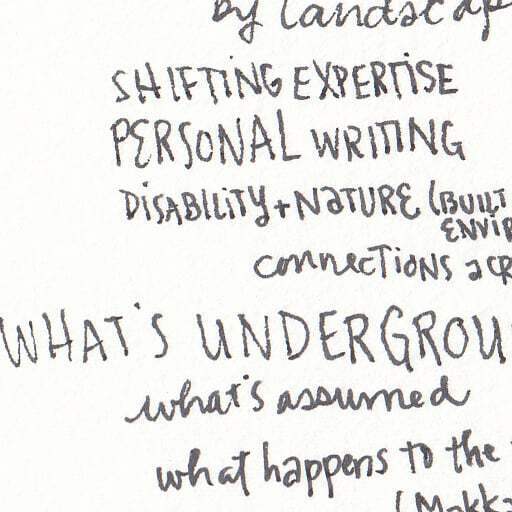 by landscap
SHIFTING EXPERTISE
PERSONAL WRITING
DISABILITY + NATURE (BUILT
ENVIR
connections acr
WHAT'S UNDERGROU
what's assumed
what happens to the
(Mokk